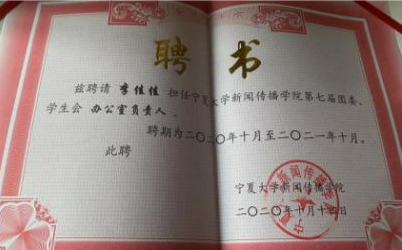 聘书
兹聘请 李佳佳 担任宁夏大学新闻传播学院第七届团委、
学生会 办公室负责人 。
聘期为二〇二〇年十月至二〇二一年十月。
此聘
宁夏大学新闻传播学院
二〇二〇年十月十四日